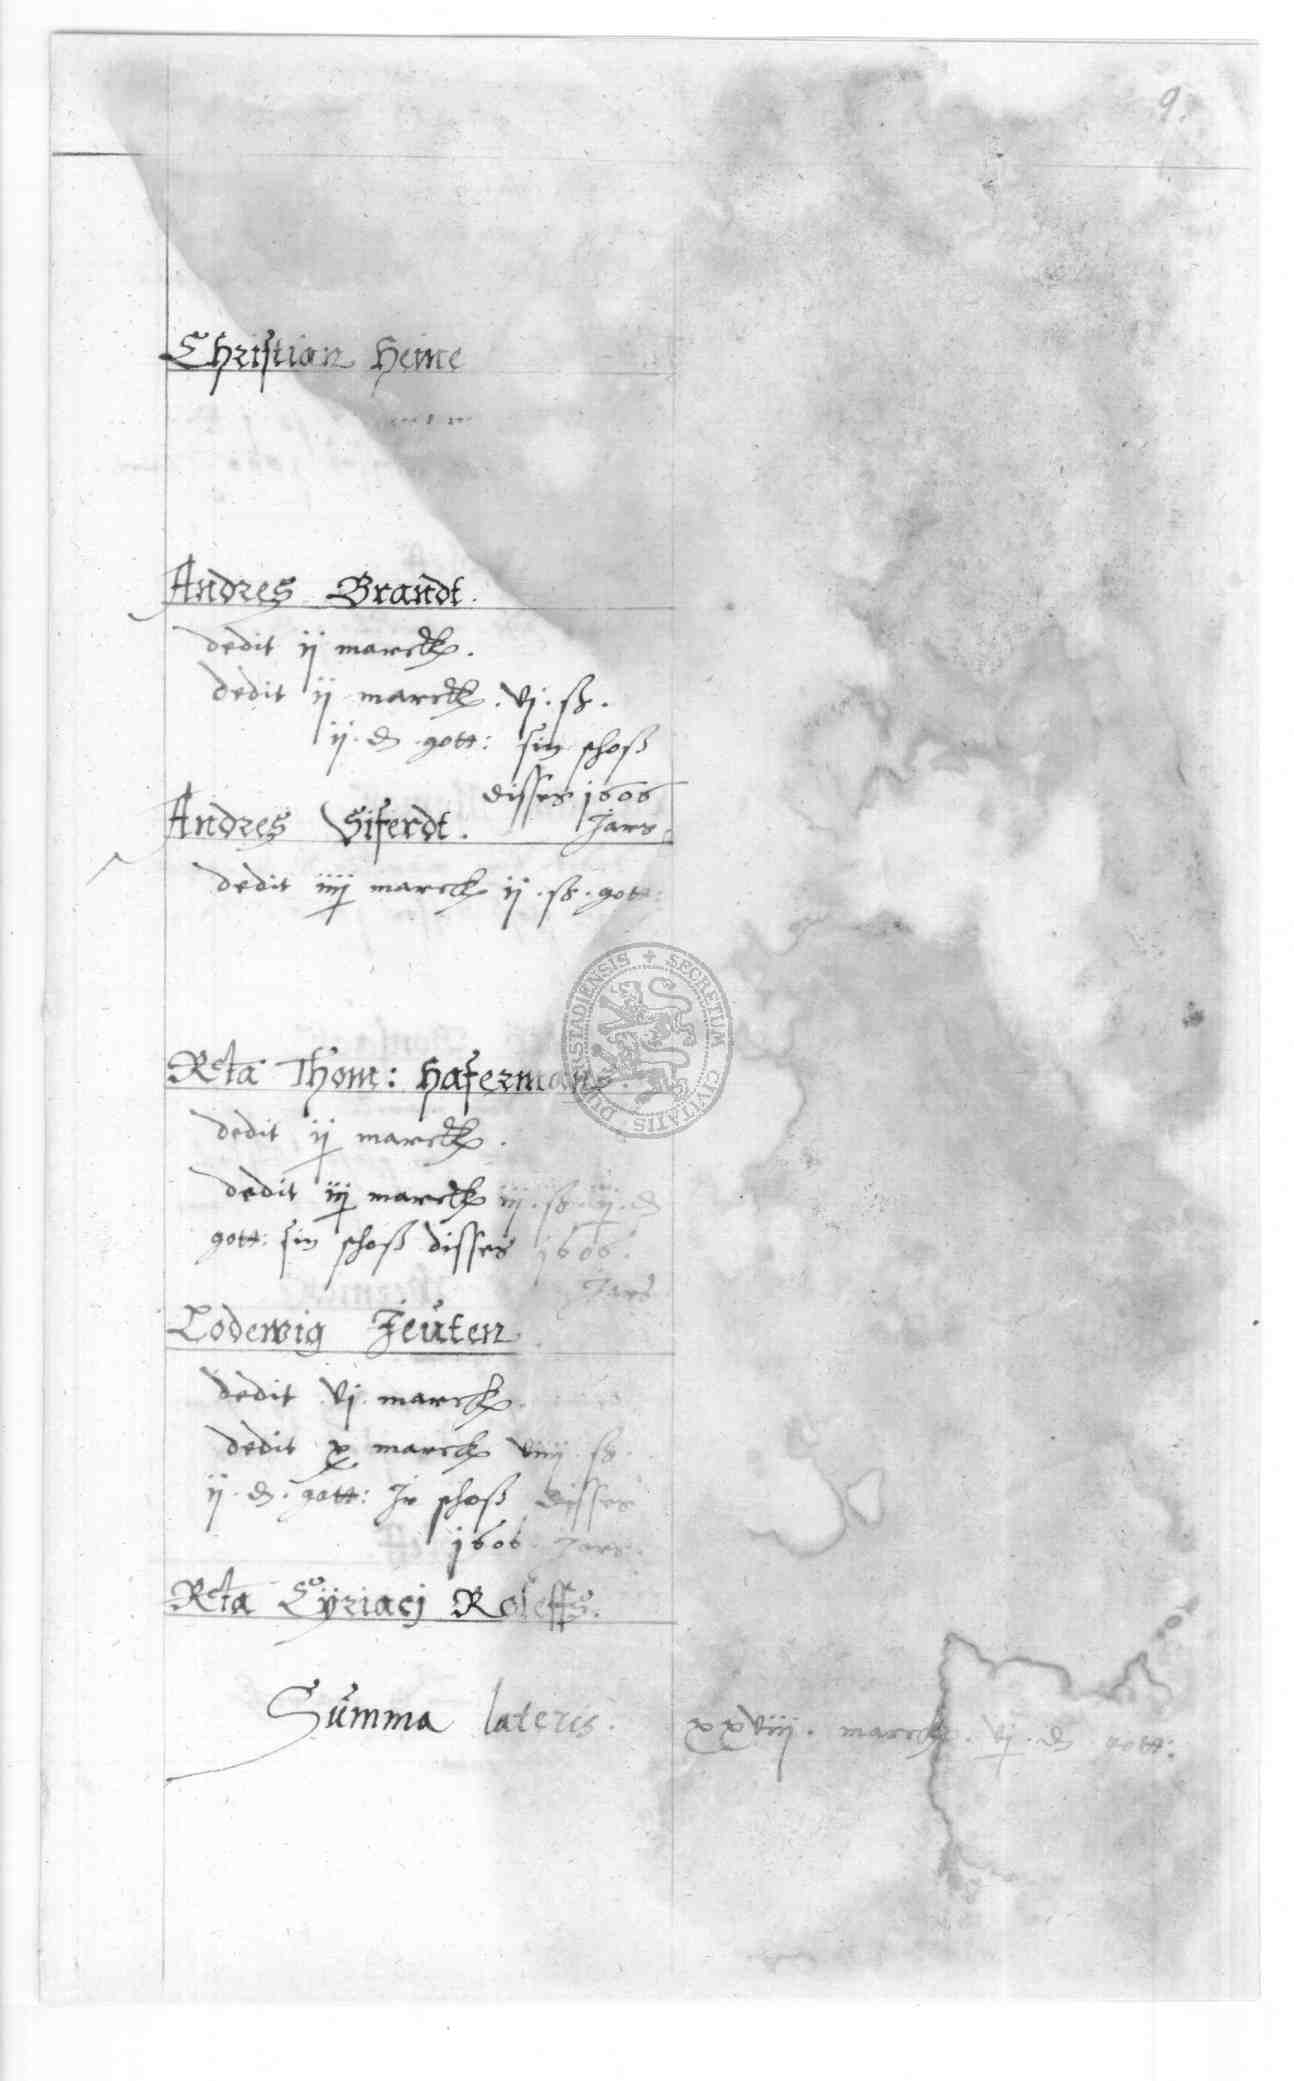 9.
Christian Heine
Andres Brandt.
dedit ij marck.
dedit ij marck. vj. ß.
ij. d. gott: sin schoß
disses 1606
Jars
Andres Siferdt.
dedit iiij marck ij. ß. gott:
Rcta Thom: Hafermans.
dedit ij marck.
dedit iij marck iij. ß. iij. d
gott: sin schoß disses 1606.
Jars
Lodewig Jeuten
dedit vj. marck.
dedit x marck viiij ß.
ij. d. gott: Jr schoß disses
1606. Jars.
Rcta Cÿriacj Roleffs.
Summa lateris. xxviij. marck. vj. d gott:
SECRETUM CIVITATIS DUDERSTADIENSIS